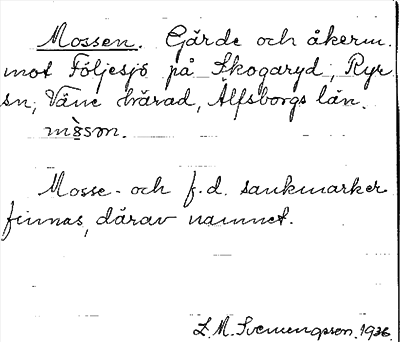 Mossen. Gärde och åkerm.
mot Följesjö på Skogaryd, Ryr
sn, Väne härad, Älfsborgs län.
mòsən.
Mosse- och f.d. sankmarker
finnas, därav namnet.
L. M. Svenungsson. 1936.